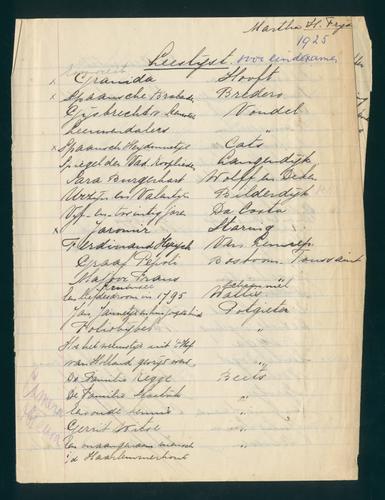 Martha H.
1925
Leeslijst voor eindexamen
x Granida Hooft
x Spaansche Brabander Bredero
Gijsbrecht van Vondel
Leeuwendalers "
x Spaansch Heydinnetje Cats
Spiegel der Vad. Kooplieden Langendijk
Sara Burgerhart Wolff en Deken
Urzijn en Valentijn Bilderdijk
Vijf en twintig jaren Da Costa
x Jaromir Staring
Ferdinand Huyck Van Lennep
Graaf Pepoli Bosboom Toussaint
Majoor Frans
Een liefdedroom in 1795 Wallis
Jan Jannetje en hun jongste kind Potgieter
"
Hoe het
van Holland "
De Familie Kegge Beets
De Familie Stastok "
Een oude kennis "
Gerrit Witse "
Een onaangenaam mensch "
i/d Haarlemmerhout